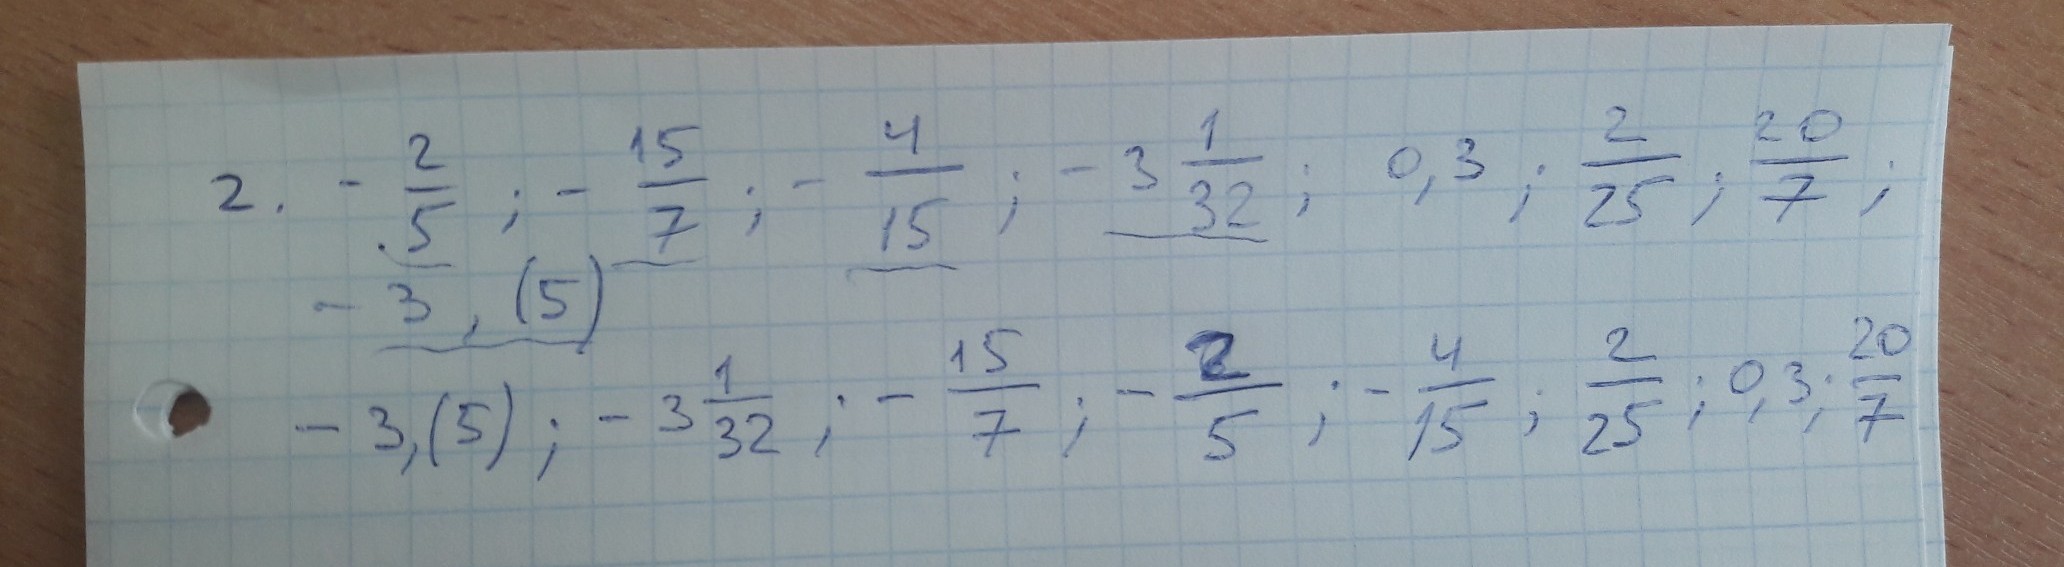 2. - 2/5 ; - 15/7 ; - 4/15 ; - 3 1/32 ; 0,3 ; 2/25 ; 20/7 ;
- 3,(5)
- 3,(5) ; - 3 1/32 ; - 15/7 ; - 2/5 ; - 4/15 ; 2/25 ; 0,3 ; 20/7